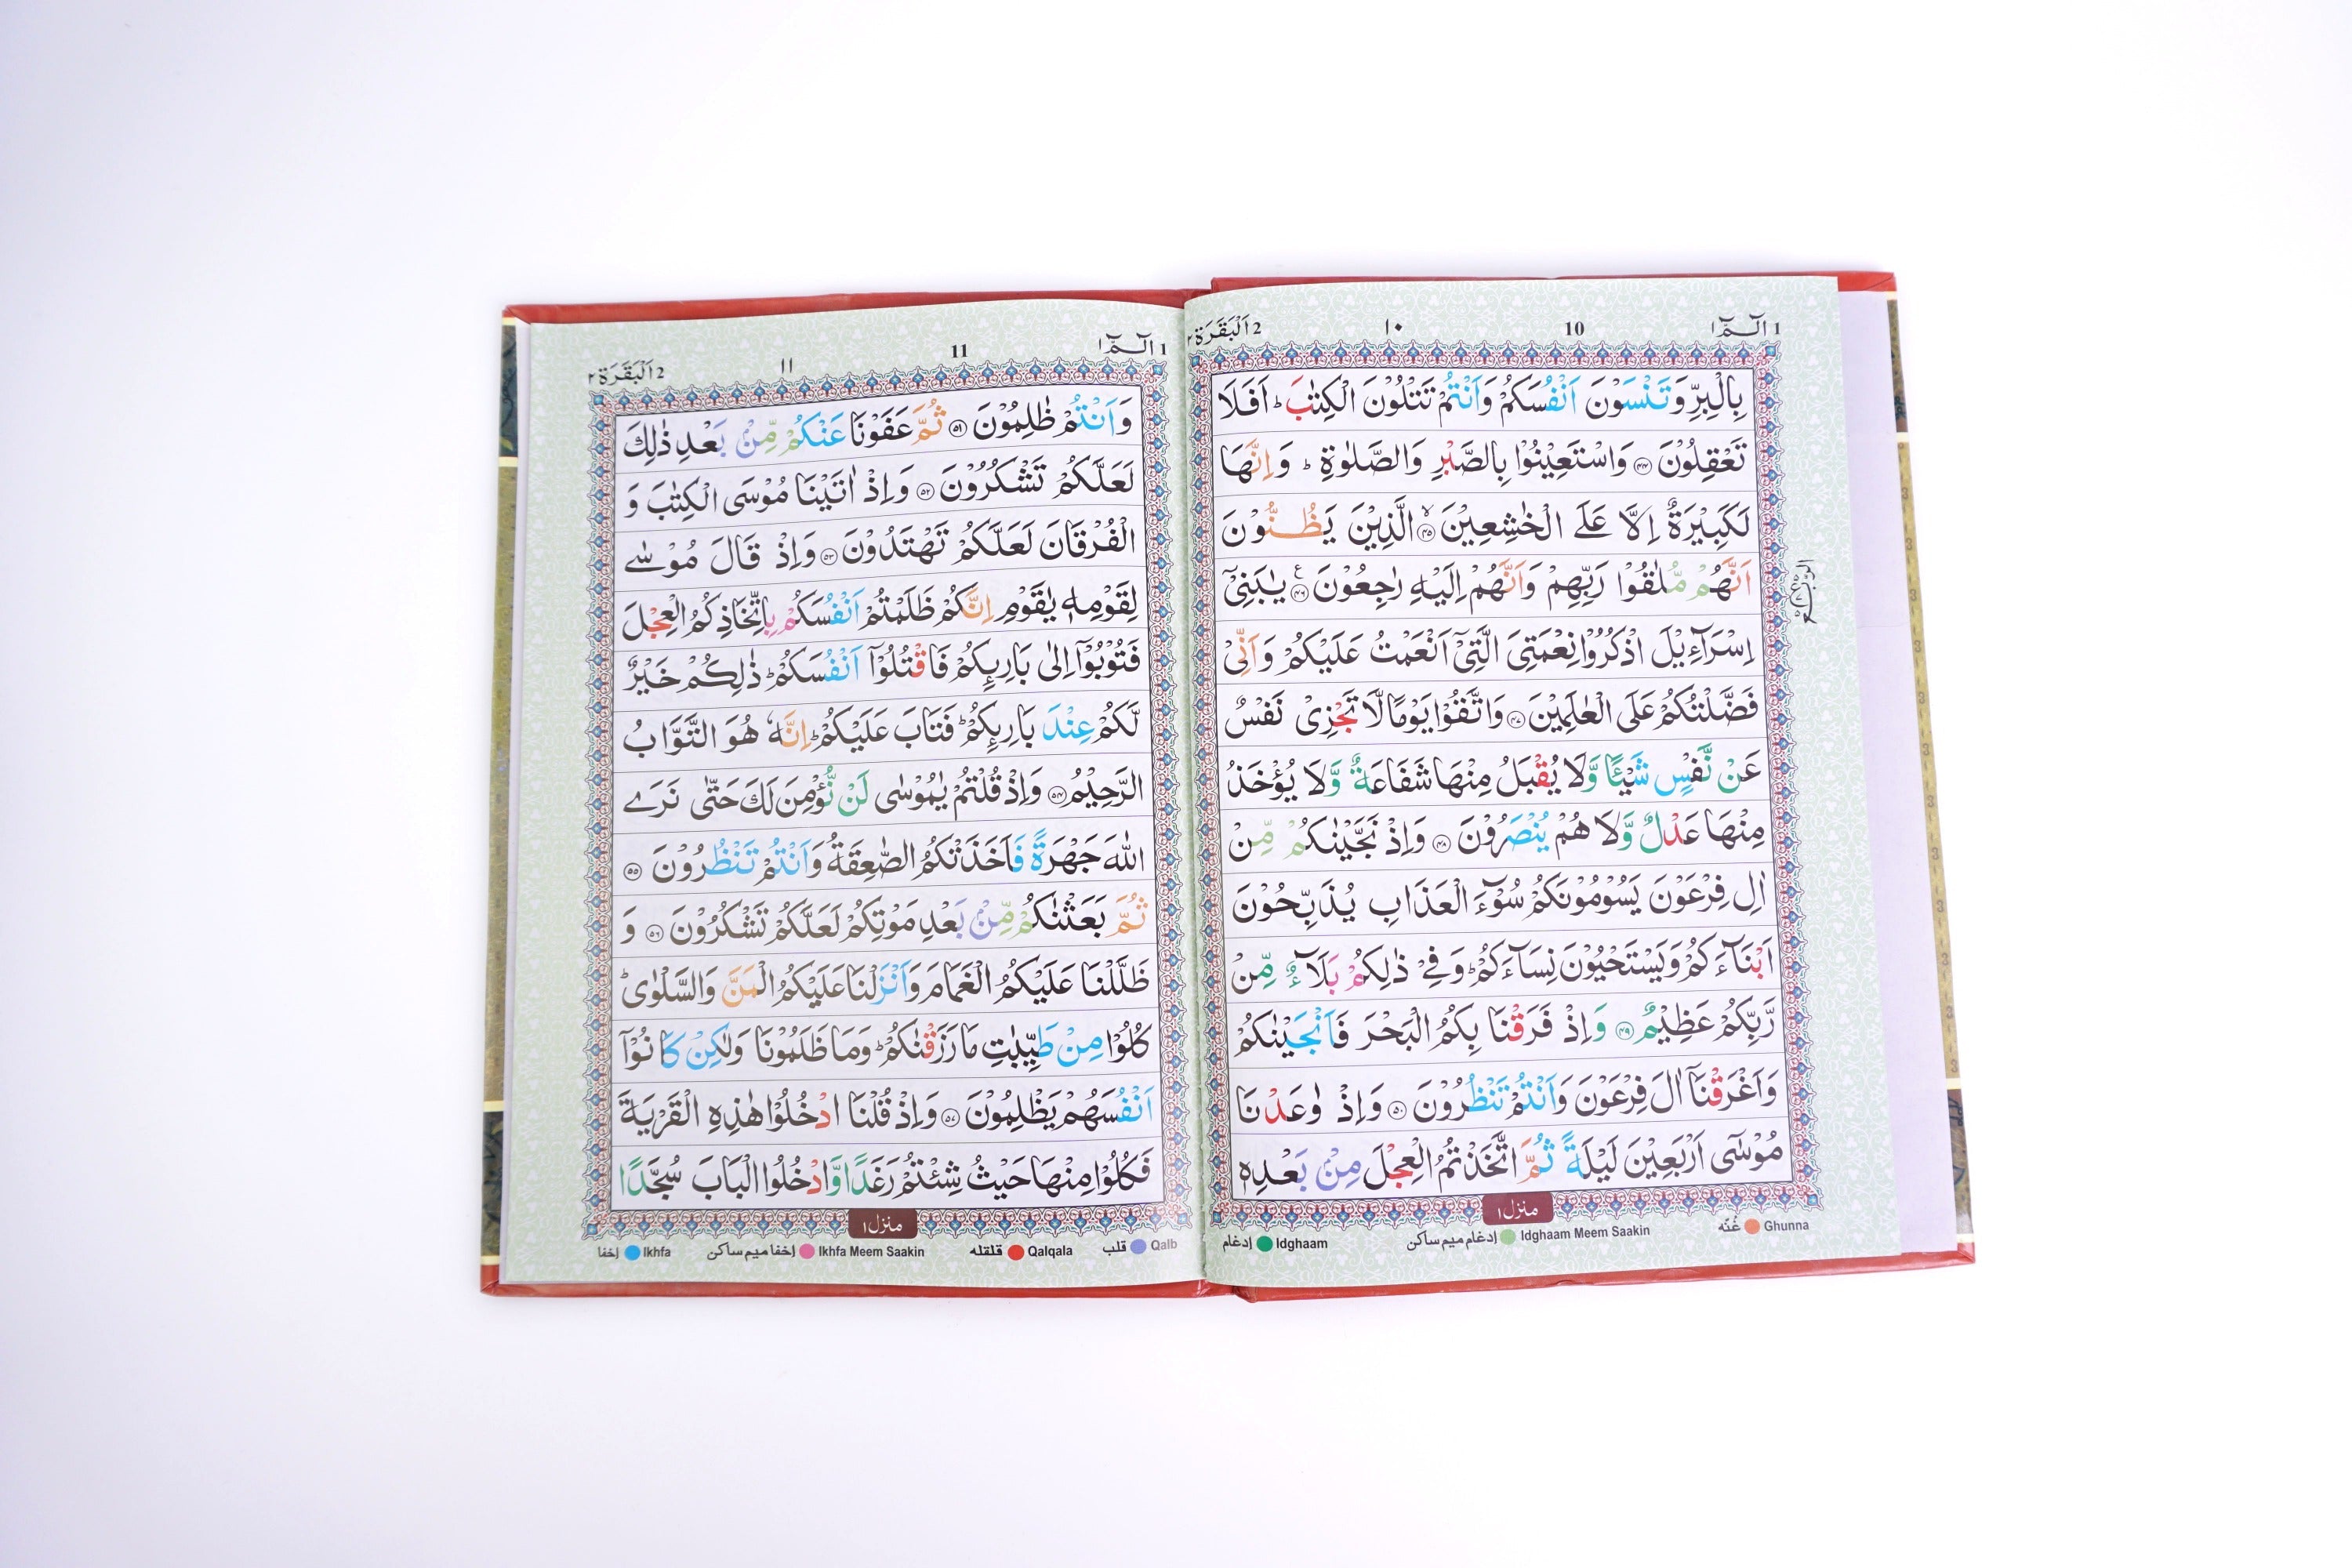 1 الٓـمّٓ ١
10
١٠
2 اَلْبَقَرَة ٢
بِالْبِرِّ وَتَنْسَوْنَ اَنْفُسَكُمْ وَاَنْتُمْ تَتْلُوْنَ الْكِتٰبَ ؕ اَفَلَا
تَعْقِلُوْنَ ﴿۴۴﴾ وَاسْتَعِيْنُوْا بِالصَّبْرِ وَالصَّلٰوةِ ؕ وَاِنَّهَا
لَكَبِيْرَةٌ اِلَّا عَلَى الْخٰشِعِيْنَ ﴿۴۵﴾ۙ الَّذِيْنَ يَظُنُّوْنَ
اَنَّهُمْ مُّلٰقُوْا رَبِّهِمْ وَاَنَّهُمْ اِلَيْهِ رٰجِعُوْنَ ﴿۴۶﴾ع يٰبَنِيْٓ
اِسْرَآءِيْلَ اذْكُرُوْا نِعْمَتِيَ الَّتِيْٓ اَنْعَمْتُ عَلَيْكُمْ وَاَنِّيْ
فَضَّلْتُكُمْ عَلَى الْعٰلَمِيْنَ ﴿۴۷﴾ وَاتَّقُوْا يَوْمًا لَّا تَجْزِيْ نَفْسٌ
عَنْ نَّفْسٍ شَيْـًٔا وَّلَا يُقْبَلُ مِنْهَا شَفَاعَةٌ وَّلَا يُؤْخَذُ
مِنْهَا عَدْلٌ وَّلَا هُمْ يُنْصَرُوْنَ ﴿۴۸﴾ وَاِذْ نَجَّيْنٰكُمْ مِّنْ
اٰلِ فِرْعَوْنَ يَسُوْمُوْنَكُمْ سُوْٓءَ الْعَذَابِ يُذَبِّحُوْنَ
اَبْنَآءَكُمْ وَيَسْتَحْيُوْنَ نِسَآءَكُمْ ؕ وَفِيْ ذٰلِكُمْ بَلَآءٌ مِّنْ
رَّبِّكُمْ عَظِيْمٌ ﴿۴۹﴾ وَاِذْ فَرَقْنَا بِكُمُ الْبَحْرَ فَاَنْجَيْنٰكُمْ
وَاَغْرَقْنَآ اٰلَ فِرْعَوْنَ وَاَنْتُمْ تَنْظُرُوْنَ ﴿۵۰﴾ وَاِذْ وٰعَدْنَا
مُوْسٰٓى اَرْبَعِيْنَ لَيْلَةً ثُمَّ اتَّخَذْتُمُ الْعِجْلَ مِنْۢ بَعْدِهٖ
منزل ١
Ghunna غُنّه
Idghaam Meem Saakin إدغام ميم ساكن
Idghaam إدغام
1 الٓـمّٓ ١
11
١١
2 اَلْبَقَرَة ٢
وَاَنْتُمْ ظٰلِمُوْنَ ﴿۵۱﴾ ثُمَّ عَفَوْنَا عَنْكُمْ مِّنْۢ بَعْدِ ذٰلِكَ
لَعَلَّكُمْ تَشْكُرُوْنَ ﴿۵۲﴾ وَاِذْ اٰتَيْنَا مُوْسَى الْكِتٰبَ وَ
الْفُرْقَانَ لَعَلَّكُمْ تَهْتَدُوْنَ ﴿۵۳﴾ وَاِذْ قَالَ مُوْسٰى
لِقَوْمِهٖ يٰقَوْمِ اِنَّكُمْ ظَلَمْتُمْ اَنْفُسَكُمْ بِاتِّخَاذِكُمُ الْعِجْلَ
فَتُوْبُوْٓا اِلٰى بَارِئِكُمْ فَاقْتُلُوْٓا اَنْفُسَكُمْ ؕ ذٰلِكُمْ خَيْرٌ
لَّكُمْ عِنْدَ بَارِئِكُمْ ؕ فَتَابَ عَلَيْكُمْ ؕ اِنَّهٗ هُوَ التَّوَّابُ
الرَّحِيْمُ ﴿۵۴﴾ وَاِذْ قُلْتُمْ يٰمُوْسٰى لَنْ نُّؤْمِنَ لَكَ حَتّٰى نَرَى
اللّٰهَ جَهْرَةً فَاَخَذَتْكُمُ الصّٰعِقَةُ وَاَنْتُمْ تَنْظُرُوْنَ ﴿۵۵﴾
ثُمَّ بَعَثْنٰكُمْ مِّنْۢ بَعْدِ مَوْتِكُمْ لَعَلَّكُمْ تَشْكُرُوْنَ ﴿۵۶﴾ وَ
ظَلَّلْنَا عَلَيْكُمُ الْغَمَامَ وَاَنْزَلْنَا عَلَيْكُمُ الْمَنَّ وَالسَّلْوٰى ؕ
كُلُوْا مِنْ طَيِّبٰتِ مَا رَزَقْنٰكُمْ ؕ وَمَا ظَلَمُوْنَا وَلٰكِنْ كَانُوْٓا
اَنْفُسَهُمْ يَظْلِمُوْنَ ﴿۵۷﴾ وَاِذْ قُلْنَا ادْخُلُوْا هٰذِهِ الْقَرْيَةَ
فَكُلُوْا مِنْهَا حَيْثُ شِئْتُمْ رَغَدًا وَّادْخُلُوا الْبَابَ سُجَّدًا
منزل ١
Qalb قلب
Qalqala قلقله
Ikhfa Meem Saakin إخفا ميم ساكن
Ikhfa إخفا